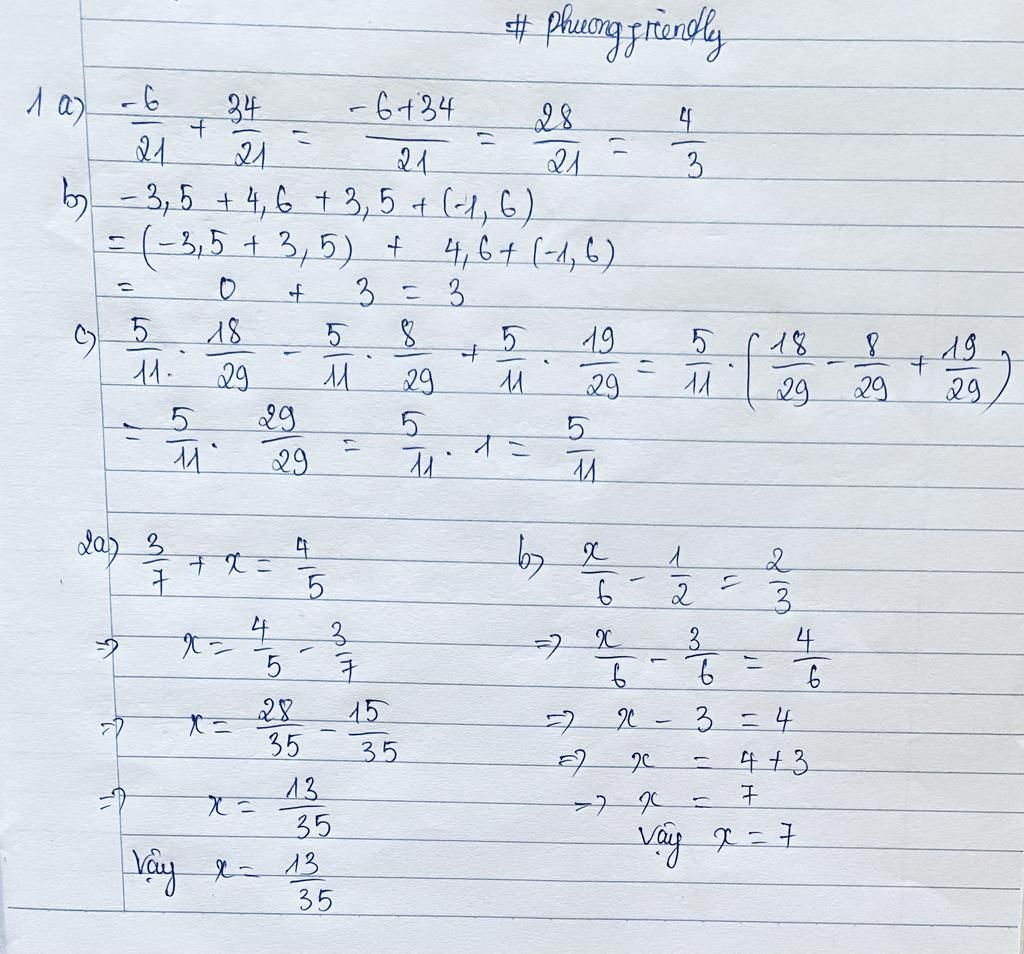 # phuongfriendly
1 a) -6/21 + 34/21 = (-6+34)/21 = 28/21 = 4/3
b) -3,5 + 4,6 + 3,5 + (-1,6)
= (-3,5 + 3,5) + 4,6 + (-1,6)
= 0 + 3 = 3
c) 5/11 . 18/29 - 5/11 . 8/29 + 5/11 . 19/29 = 5/11 . (18/29 - 8/29 + 19/29)
= 5/11 . 29/29 = 5/11 . 1 = 5/11
2a) 3/7 + x = 4/5
=> x = 4/5 - 3/7
=> x = 28/35 - 15/35
=> x = 13/35
Vậy x = 13/35
b) x/6 - 1/2 = 2/3
=> x/6 - 3/6 = 4/6
=> x - 3 = 4
=> x = 4 + 3
=> x = 7
Vậy x = 7